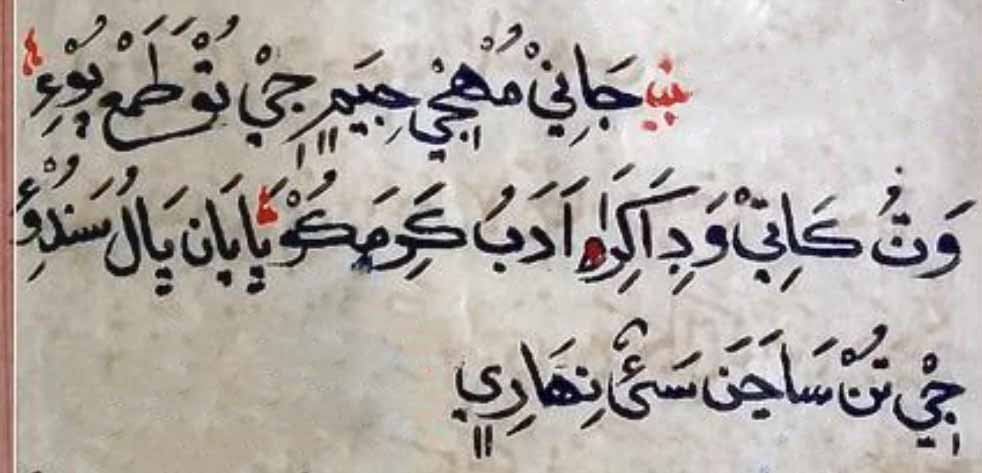 بيت جَانِيْ مُنْهْجِي جِيَمِ جِيْ تُوْ طَمَعْ پُوْءِ
وَتُ كَاتِيْ وَدِ اَكِرَا اَدَبُ كَرِ مَ كُوْ پَاپَان پَالُ سَندُوْءِ
جِيْ تُنْ سَاجَنَ سَئَ نِهَارِي